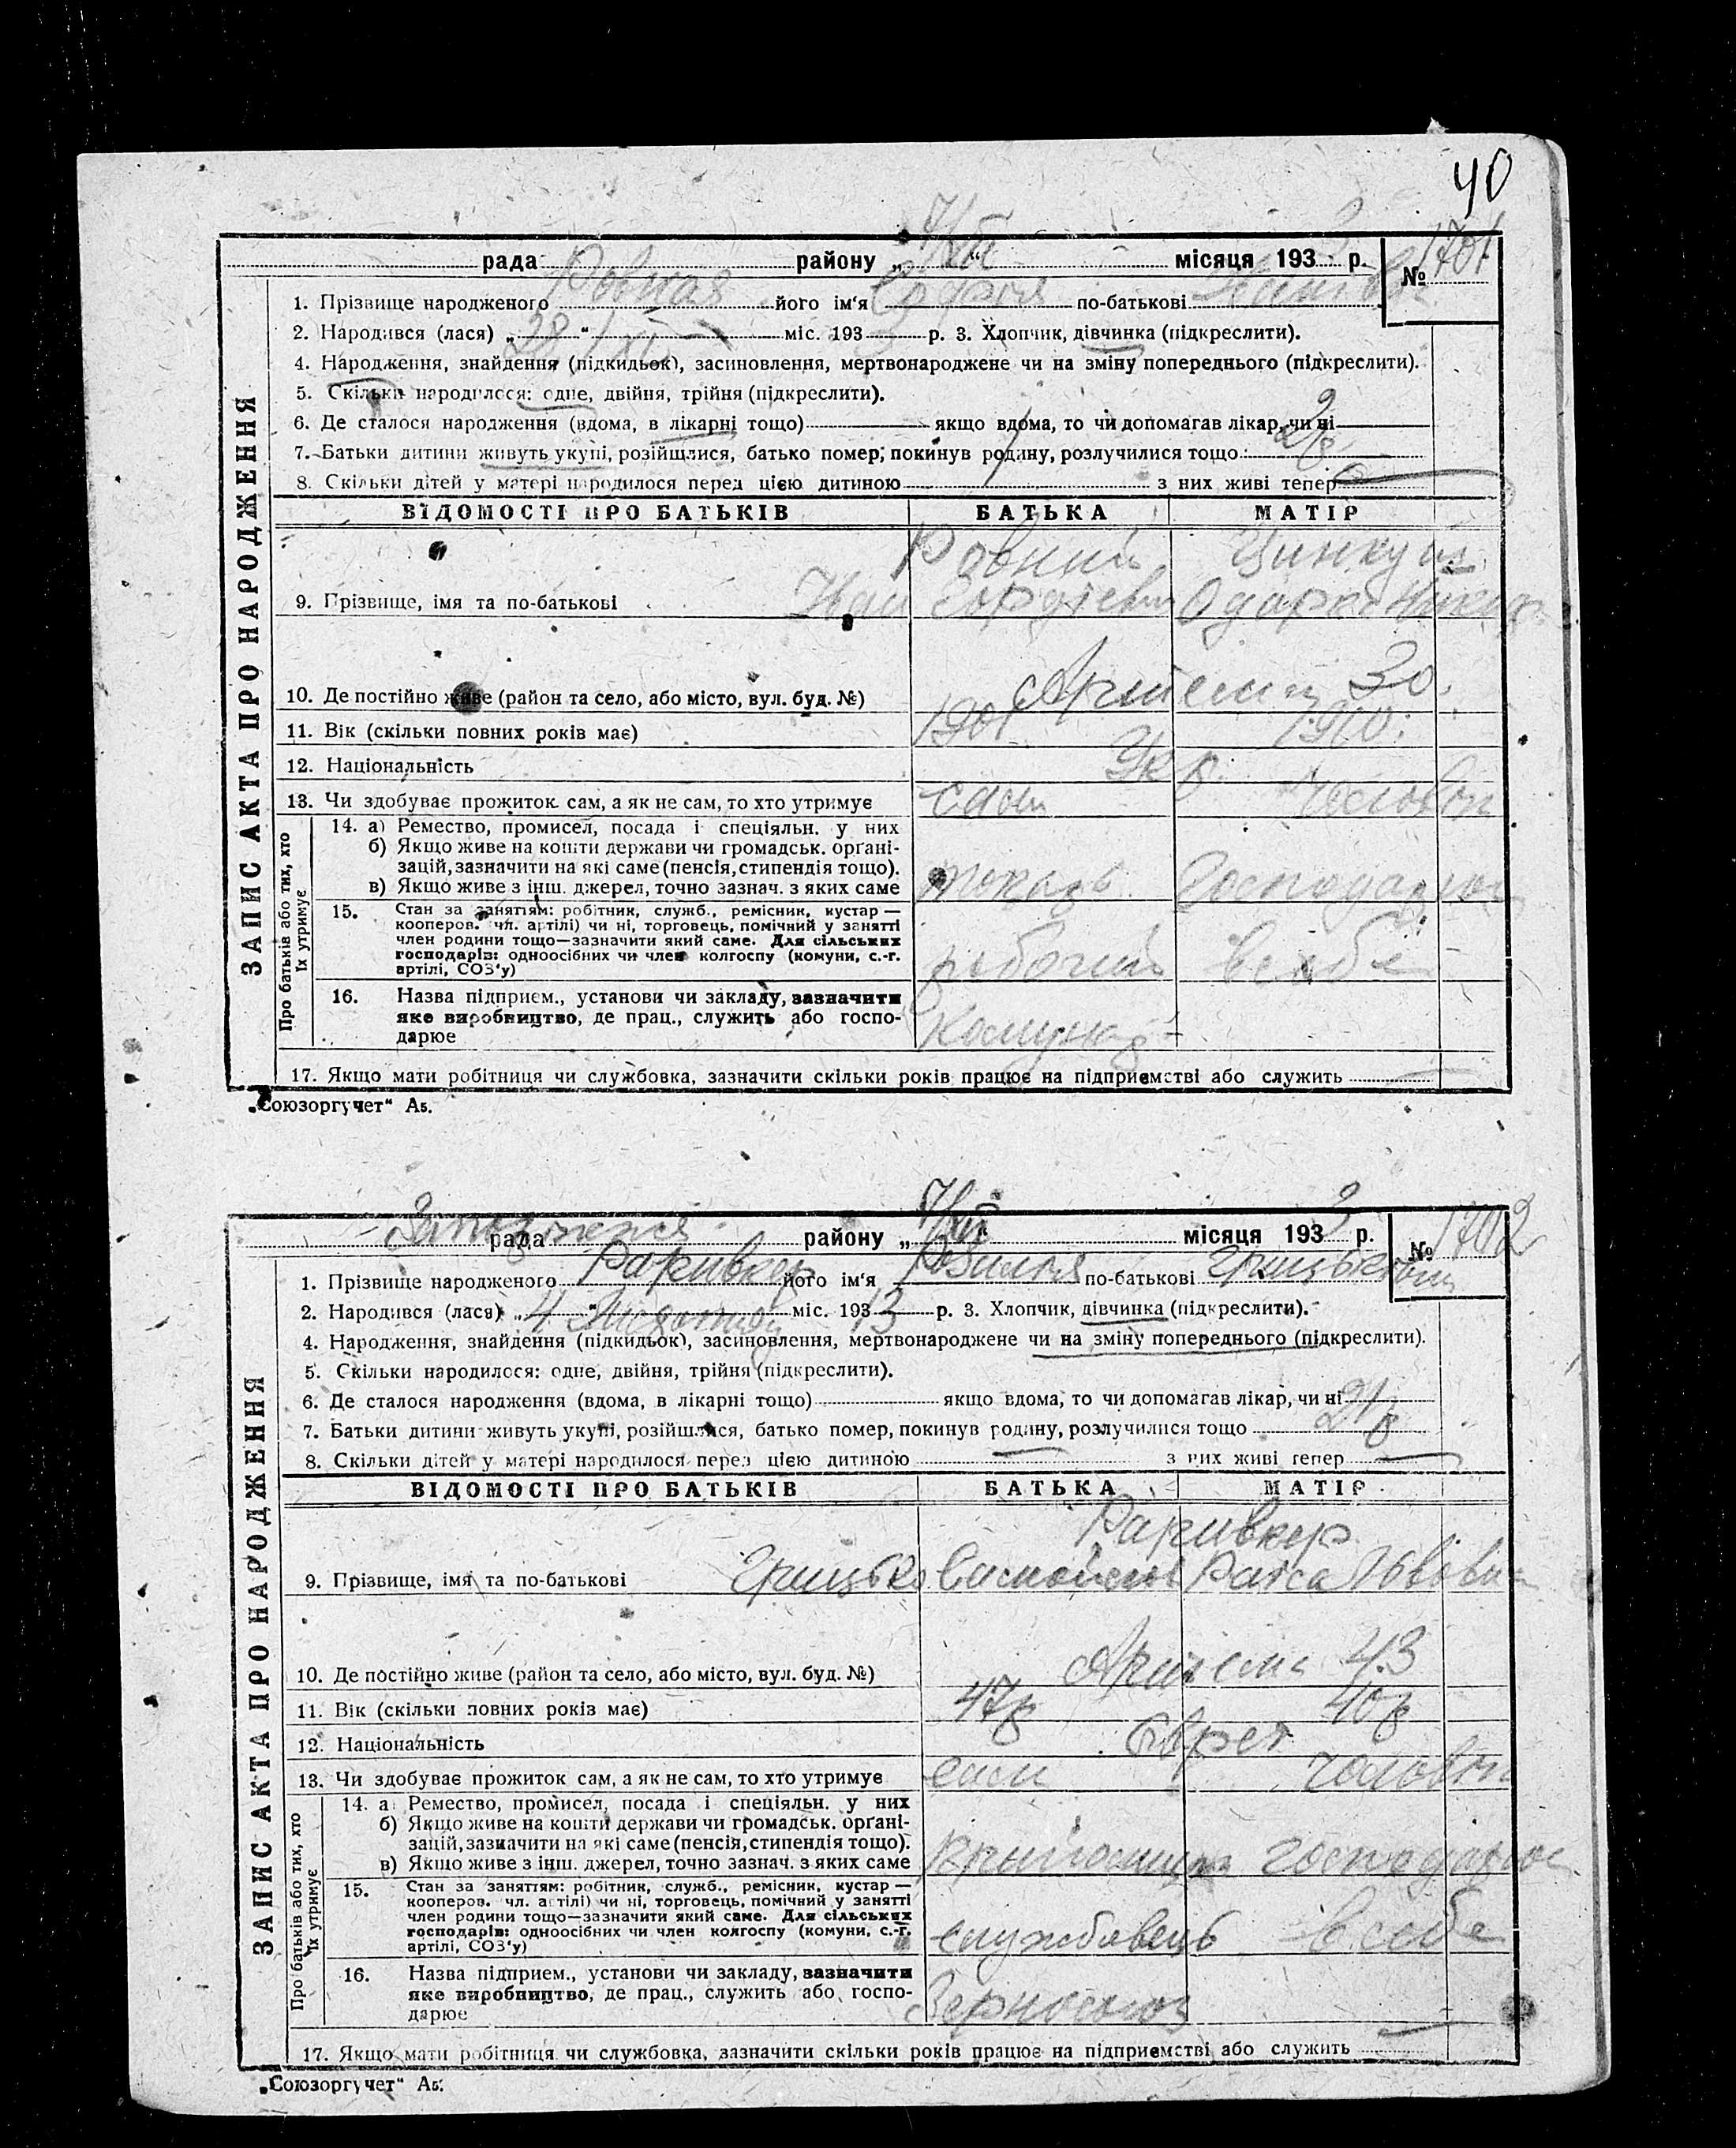 40
7/XII
рада Ровная району „ “ місяця 1933 р. № 1701
1. Прізвище народженого його ім'я Софія по-батькові
2. Народився (лася) „28/XI“ міс. 1933 р. 3. Хлопчик, дівчинка (підкреслити).
4. Народження, знайдення (підкидьок), засиновлення, мертвонароджене чи на зміну попереднього (підкреслити).
5. Скільки народилося: одне, двійня, трійня (підкреслити).
6. Де сталося народження (вдома, в лікарні тощо) якщо вдома, то чи допомагав лікар, чи ні
7. Батьки дитини живуть укупі, розійшлися, батько помер, покинув родину, розлучилися тощо
8. Скільки дітей у матері народилося перед цією дитиною з них живі тепер
ЗАПИС АКТА ПРО НАРОДЖЕННЯ
ВІДОМОСТІ ПРО БАТЬКІВ БАТЬКА МАТІР
Ровний
9. Прізвище, імя та по-батькові Одарка
10. Де постійно живе (район та село, або місто, вул. буд. №) Артема 30.
11. Вік (скільки повних років має) 1901 1910.
12. Національність Укр.
13. Чи здобуває прожиток сам, а як не сам, то хто утримує сам чоловік
Про батьків або тих, хто їх утримує
14. а) Ремество, промисел, посада і спеціяльн. у них
б) Якщо живе на кошти держави чи громадськ. орґані-
зацій, зазначити на які саме (пенсія, стипендія тощо).
в) Якщо живе з інш. джерел, точно зазнач. з яких саме токарь господарює
15. Стан за заняттям: робітник, служб., ремісник, кустар —
кооперов. чл. артілі) чи ні, торговець, помічний у занятті
член родини тощо—зазначити який саме. Для сільських
господарів: одноосібних чи член колгоспу (комуни, с.-г.
артілі, СОЗ'у) робочий в себе
16. Назва підприєм., установи чи закладу, зазначити
яке виробництво, де прац., служить або госпо-
дарює Комунар
17. Якщо мати робітниця чи службовка, зазначити скільки років працює на підприємстві або служить
„Союзоргучет“ А5.
Запоріжжя 7/XII
рада району „ “ місяця 1933 р. № 1702
1. Прізвище народженого Рапивкер його ім'я по-батькові
2. Народився (лася) „4“ Листопад міс. 1913 р. 3. Хлопчик, дівчинка (підкреслити).
4. Народження, знайдення (підкидьок), засиновлення, мертвонароджене чи на зміну попереднього (підкреслити).
5. Скільки народилося: одне, двійня, трійня (підкреслити).
6. Де сталося народження (вдома, в лікарні тощо) якщо вдома, то чи допомагав лікар, чи ні
7. Батьки дитини живуть укупі, розійшлися, батько помер, покинув родину, розлучилися тощо
8. Скільки дітей у матері народилося перед цією дитиною з них живі тепер
ЗАПИС АКТА ПРО НАРОДЖЕННЯ
ВІДОМОСТІ ПРО БАТЬКІВ БАТЬКА МАТІР
Рапивкер
9. Прізвище, імя та по-батькові Грицько Раїса Львівна
10. Де постійно живе (район та село, або місто, вул. буд. №) Артема 43
11. Вік (скільки повних років має) 47р 40р
12. Національність Євреї
13. Чи здобуває прожиток сам, а як не сам, то хто утримує сам чоловік
Про батьків або тих, хто їх утримує
14. а Ремество, промисел, посада і спеціяльн. у них
б) Якщо живе на кошти держави чи громадськ. орґані-
зацій, зазначити на які саме (пенсія, стипендія тощо).
в) Якщо живе з інш. джерел, точно зазнач. з яких саме господарює
15. Стан за заняттям: робітник, служб., ремісник, кустар —
кооперов. чл. артілі) чи ні, торговець, помічний у занятті
член родини тощо—зазначити який саме. Для сільських
господарів: одноосібних чи член колгоспу (комуни, с.-г.
артілі, СОЗ'у) службовець в себе
16. Назва підприєм., установи чи закладу, зазначити
яке виробництво, де прац., служить або госпо-
дарює Зерносоюз
17. Якщо мати робітниця чи службовка, зазначити скільки років працює на підприємстві або служить
„Союзоргучет“ А5.